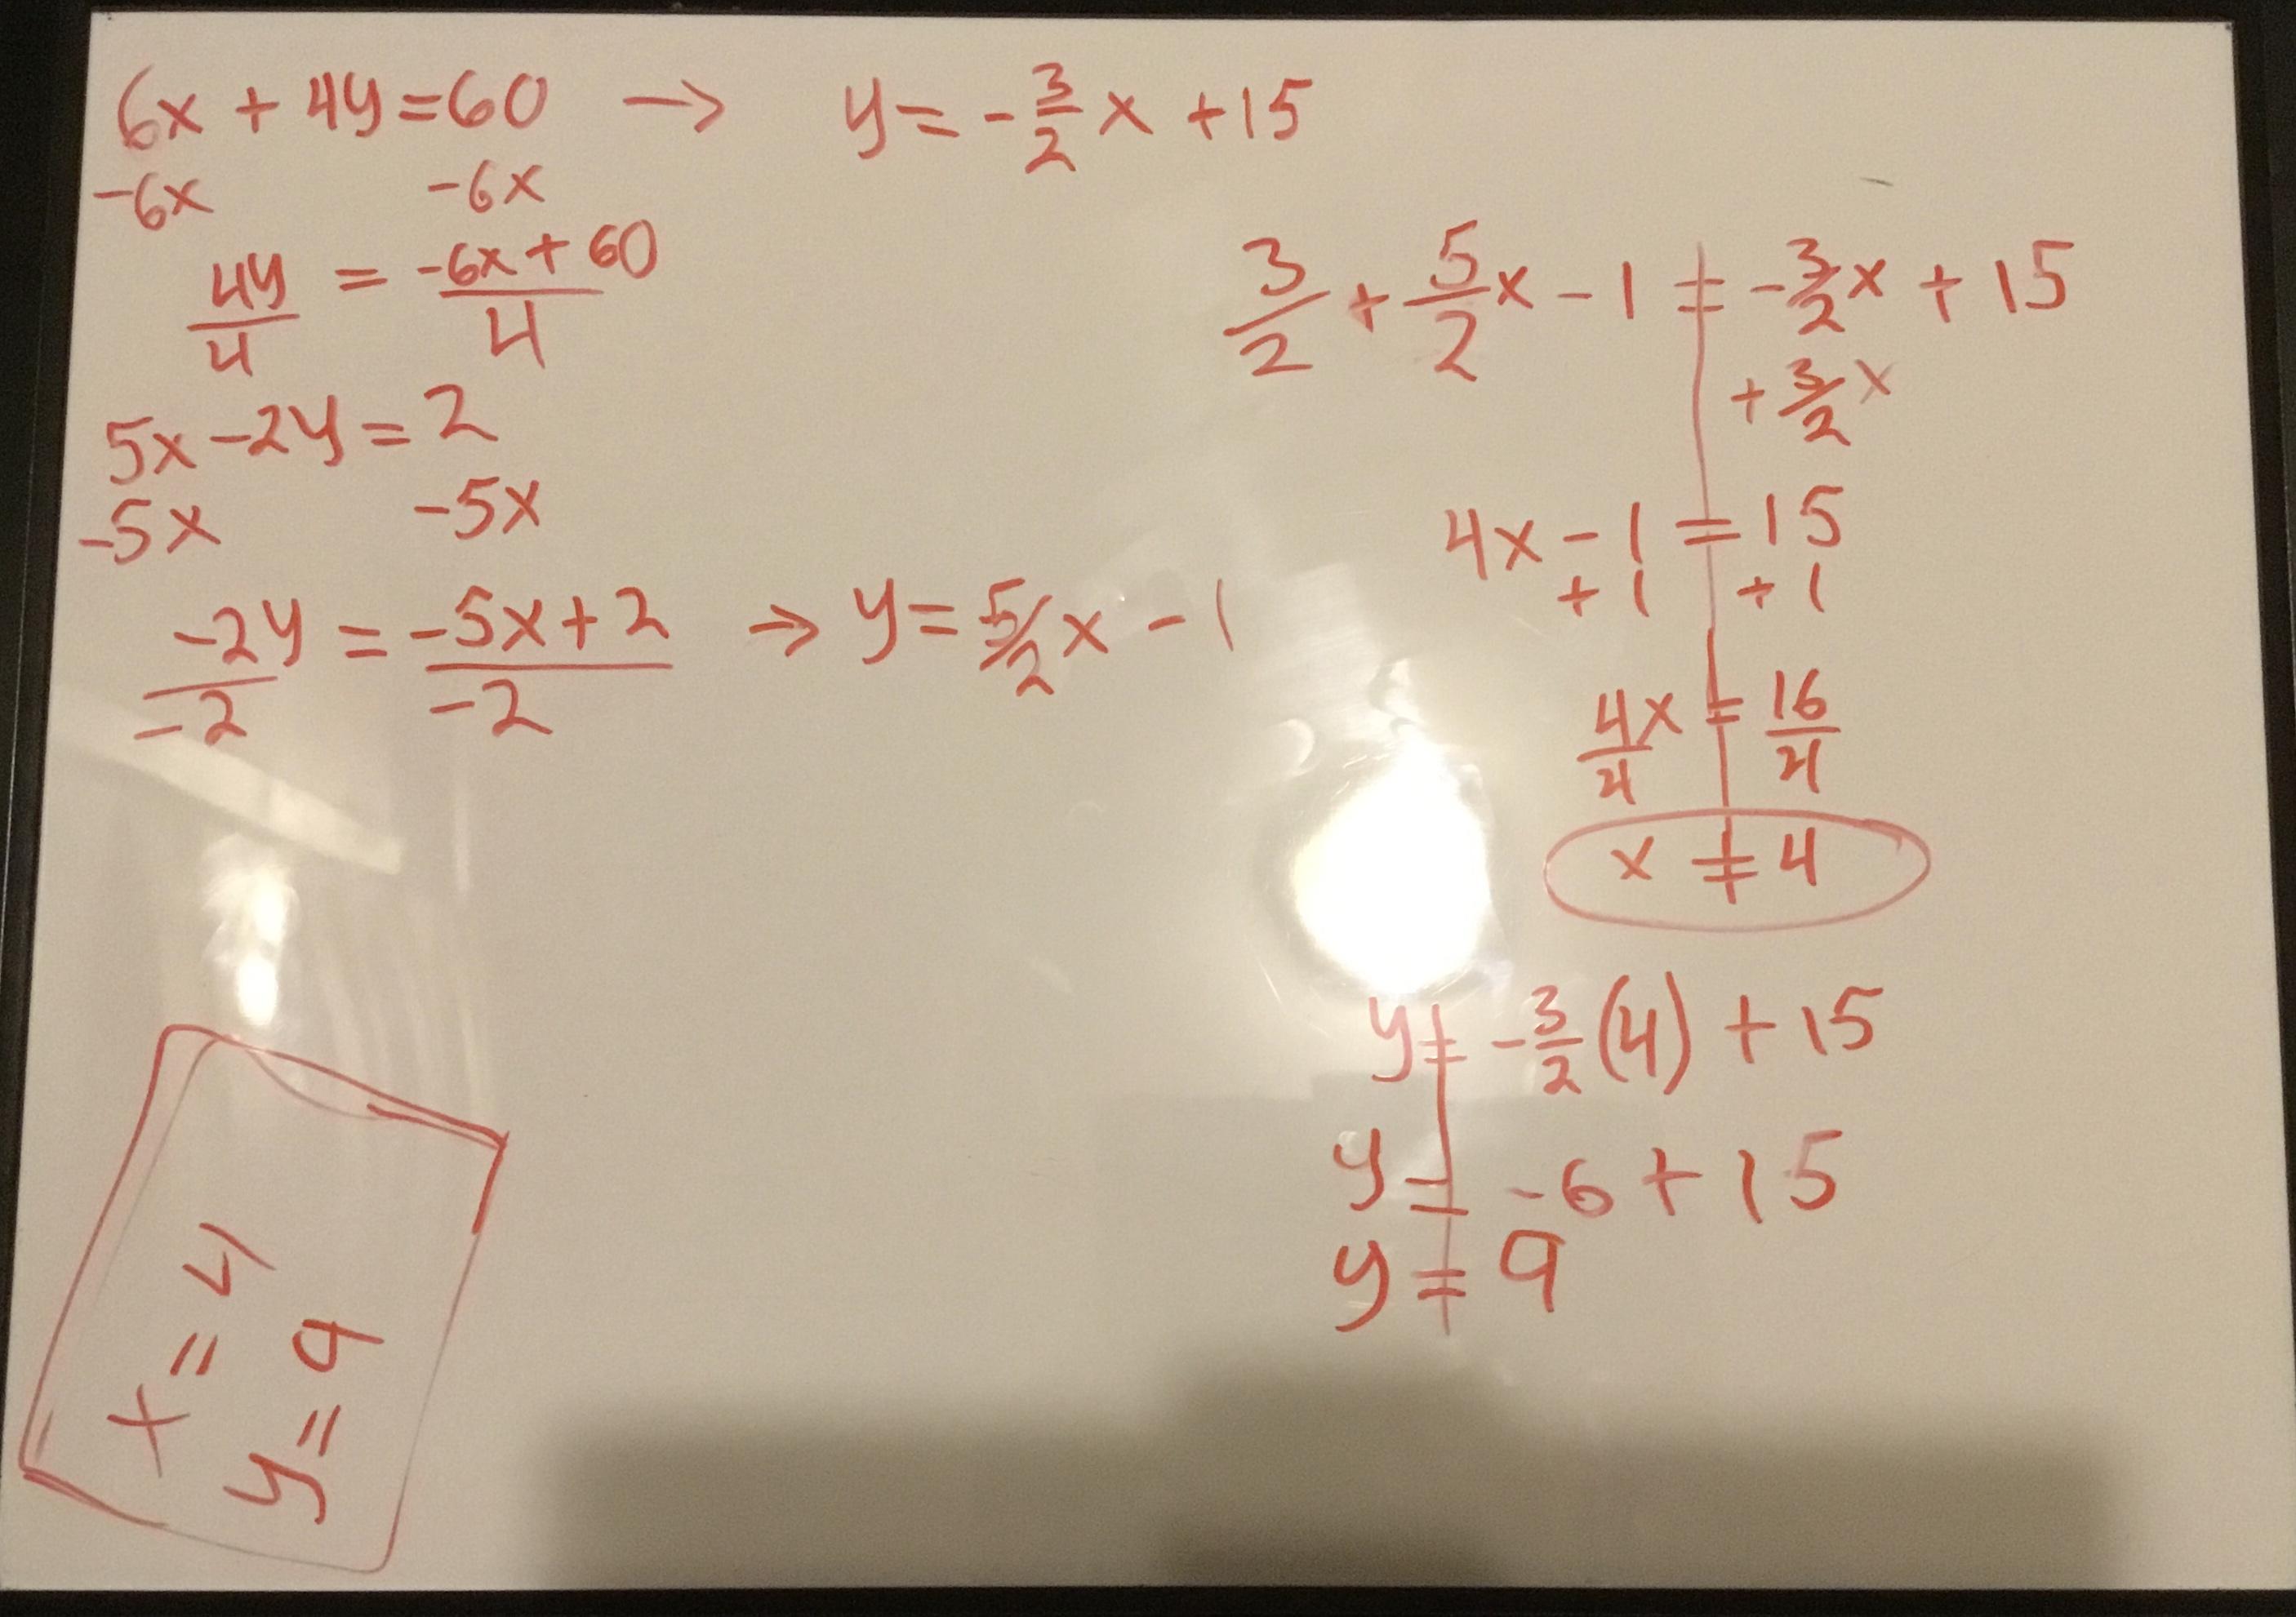 6x + 4y = 60 → y = -3/2 x + 15
-6x -6x
4y/4 = -6x + 60/4
5x - 2y = 2
-5x -5x
-2y/-2 = -5x + 2/-2 → y = 5/2 x - 1
3/2 + 5/2 x - 1 = -3/2 x + 15
+ 3/2 x
4x - 1 = 15
+ 1 + 1
4x/4 = 16/4
x = 4
y = -3/2 (4) + 15
y = -6 + 15
y = 9
x = 4
y = 9